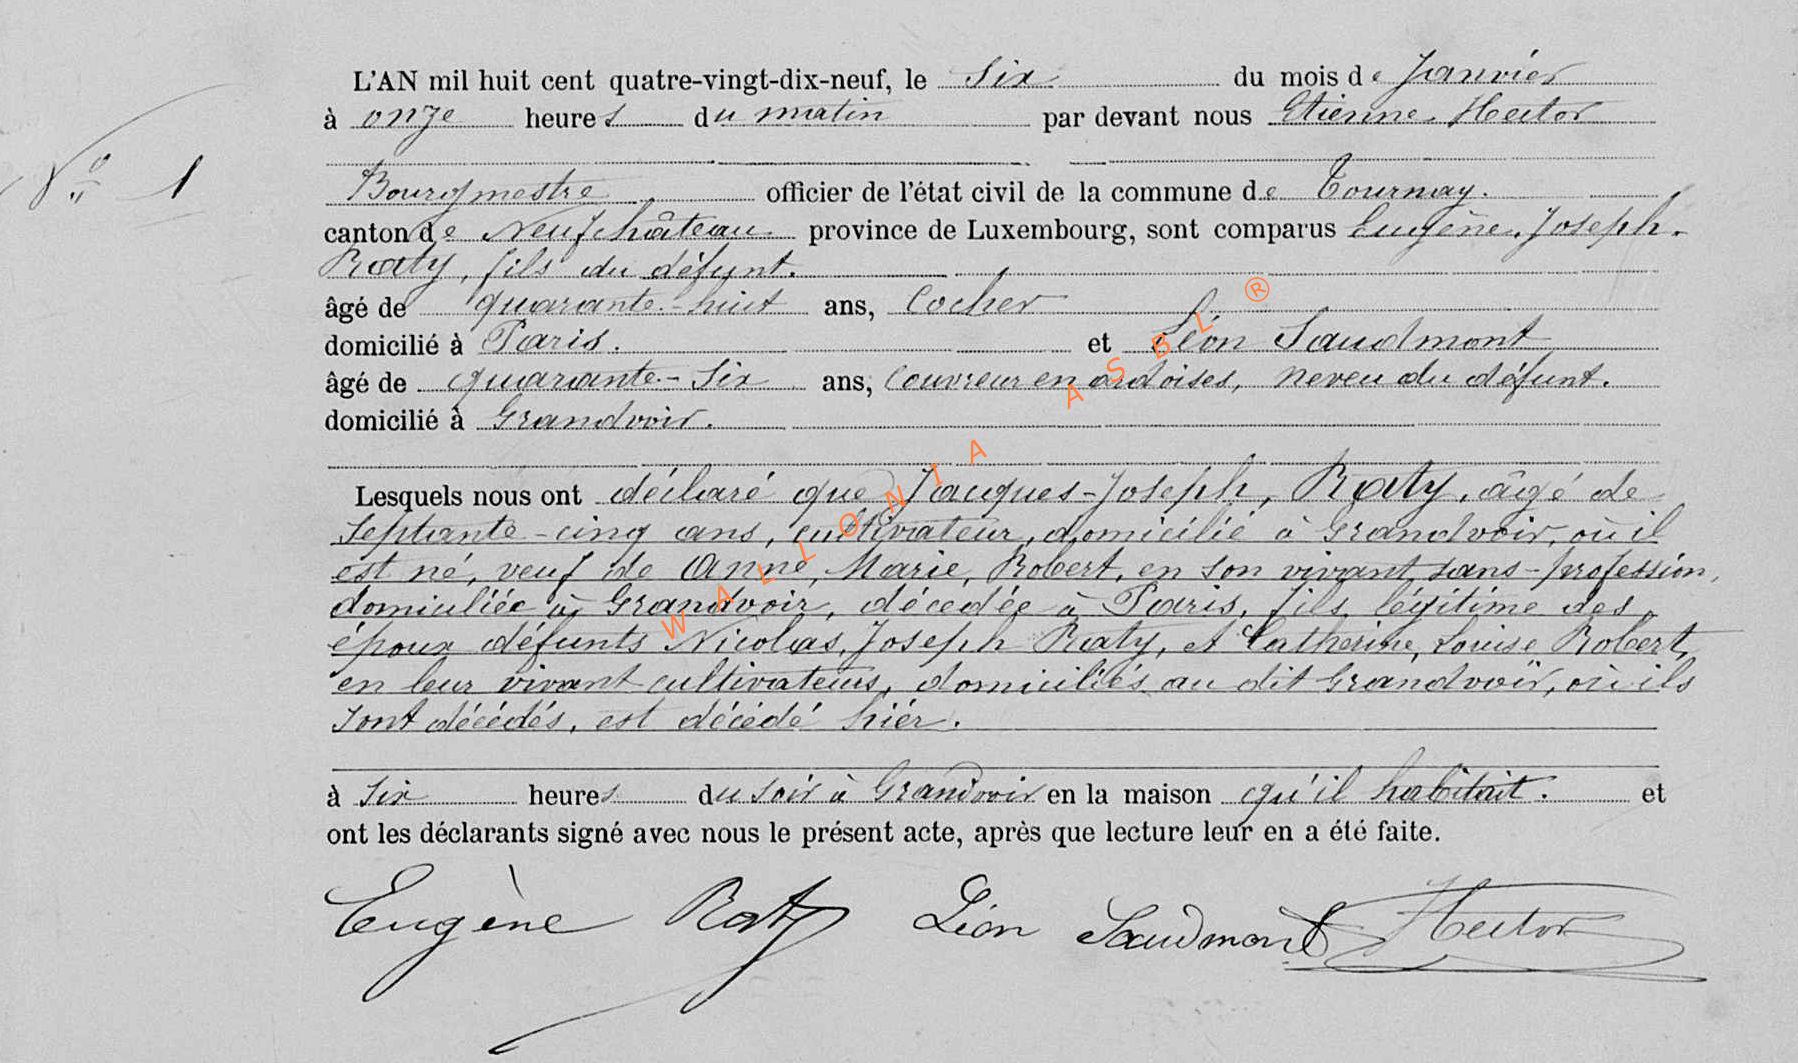 L'AN mil huit cent quatre-vingt-dix-neuf, le six du mois de Janvier
à onze heures du matin par devant nous Etienne, Hector
N° 1
Bourgmestre officier de l'état civil de la commune de Tournay.
canton de Neufchâteau province de Luxembourg, sont comparus Eugène, Joseph,
Raty, fils du défunt.
âgé de quarante-huit ans, Cocher
domicilié à Paris. et Léon Saudmont
âgé de quarante-six ans, Couvreur en ardoises, neveu du défunt.
domicilié à Grandvoir.
Lesquels nous ont déclaré que Jacques-Joseph, Raty, âgé de
septante-cinq ans, cultivateur, domicilié à Grandvoir, où il
est né, veuf de Anne, Marie, Robert, en son vivant sans-profession,
domiciliée à Grandvoir, décedée à Paris, fils légitime des
époux défunts Nicolas, Joseph Raty, et Catherine, Louise Robert,
en leur vivant cultivateurs, domiciliés au dit Grandvoir, où ils
sont décédés, est décédé hier.
à six heures du soir à Grandvoir en la maison qu'il habitait. et
ont les déclarants signé avec nous le présent acte, après que lecture leur en a été faite.
Eugène Raty Léon Saudmont Hector
WALLONIA ASBL ®